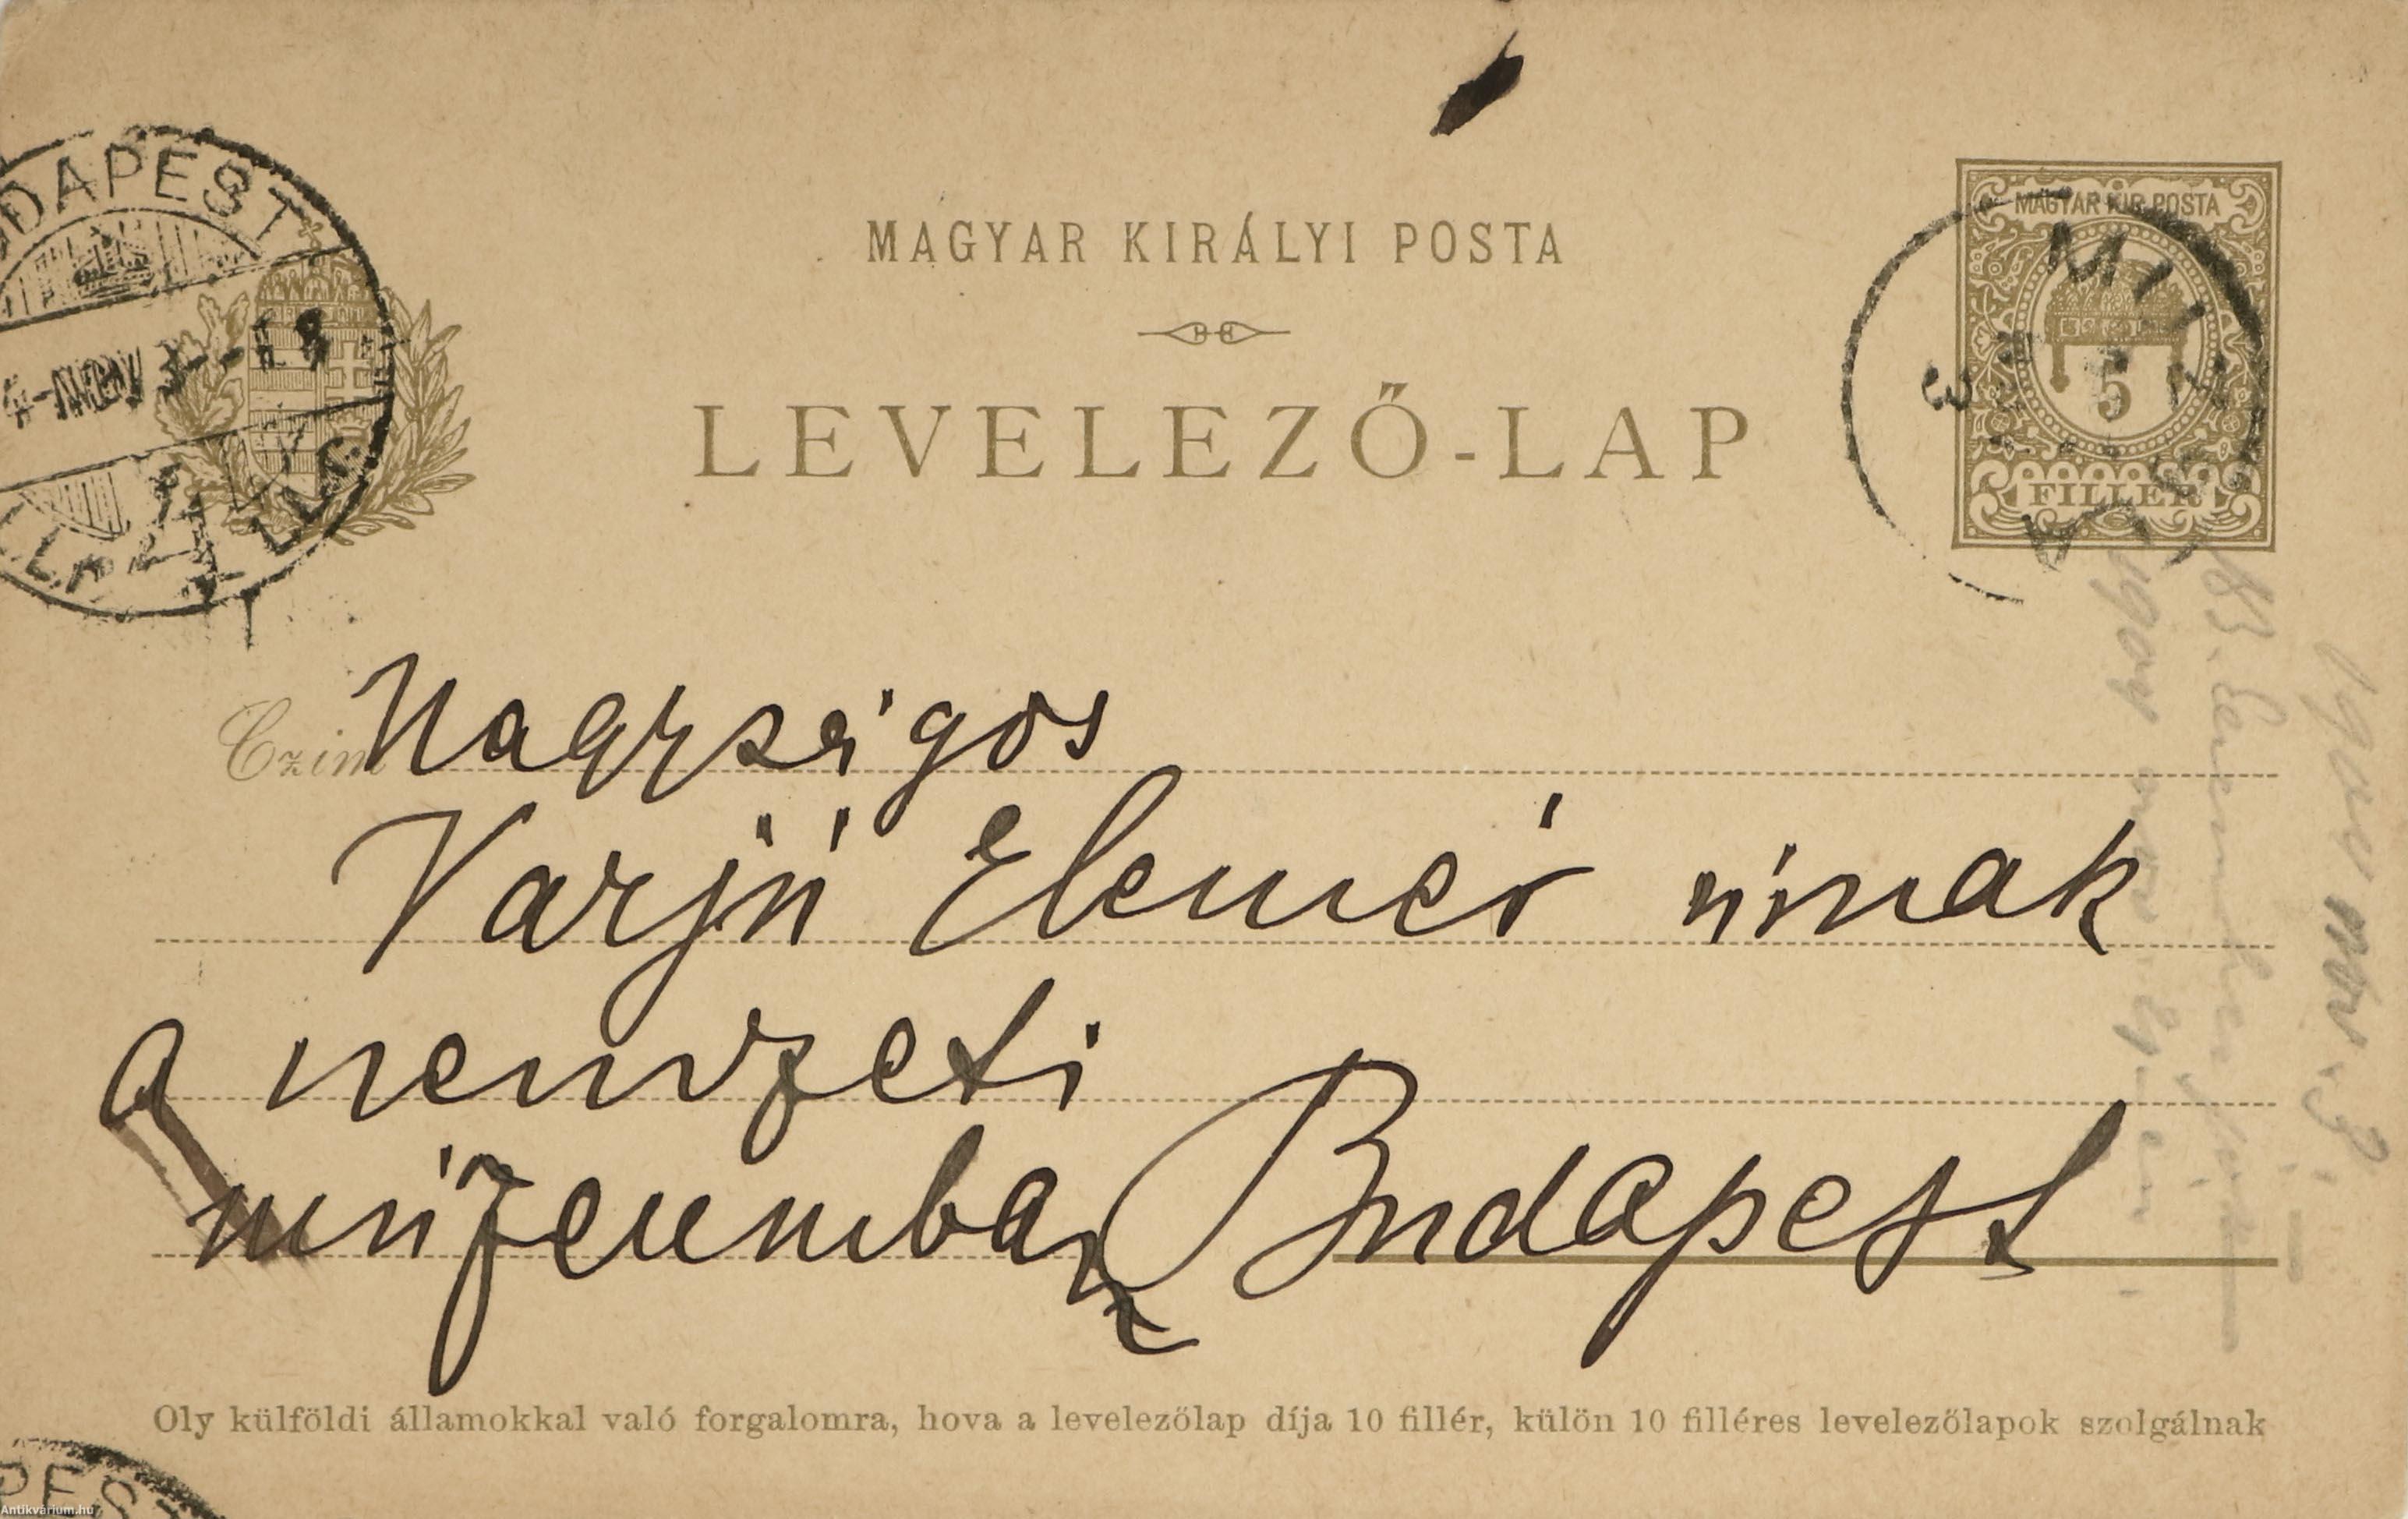 BUDAPEST
MAGYAR KIRÁLYI POSTA
LEVELEZŐ-LAP
MAGYAR KIR. POSTA
5
FILLÉR
3
Czim
Nagyságos
Varjú Elemér úrnak
a nemzeti
múzeumban Budapest
Oly külföldi államokkal való forgalomra, hova a levelezőlap díja 10 fillér, külön 10 filléres levelezőlapok szolgálnak
PEST
Antikvárium.hu